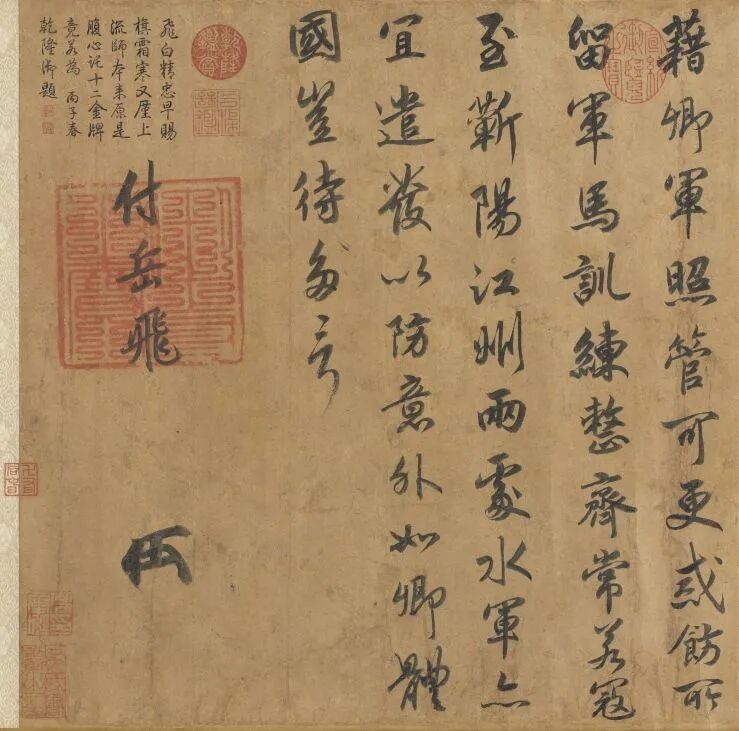 藉卿軍照管可更戒飭所
留軍馬訓練整齊常若寇
至蘄陽江州兩處水軍亦
宜遣發以防意外如卿體
國豈待多言
付岳飛
飛白精忠早賜
旗霜寒又廑上
流師本來原是
腹心託十二金牌
竟若為 丙子春
乾隆御題